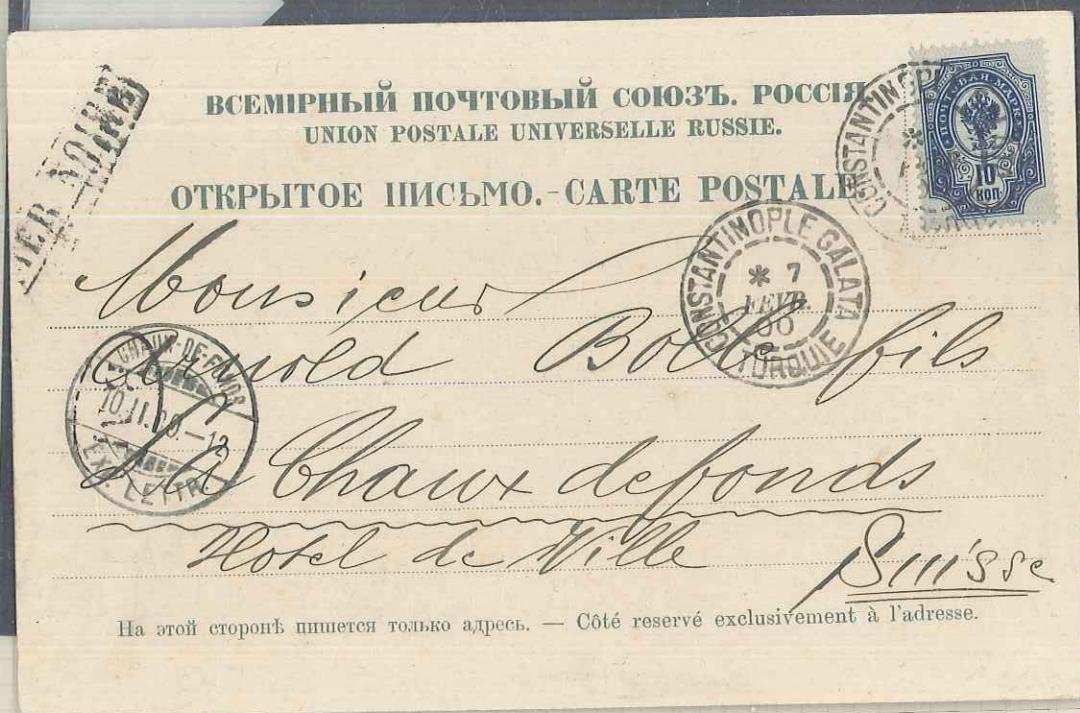 MER NOIRE
ВСЕМІРНЫЙ ПОЧТОВЫЙ СОЮЗЪ. РОССІЯ
UNION POSTALE UNIVERSELLE RUSSIE.
ОТКРЫТОЕ ПИСЬМО.-CARTE POSTALE
CONSTANTINOPLE
ПОЧТОВАЯ МАРКА
10
КОП
CONSTANTINOPLE GALATA
* 7
FEVR.
00
TURQUIE
Monsieur
Arnold Bolle fils
CHAUX-DE-FONDS
10.II.00.-12
EXP. LETTR.
La Chaux defonds
Hotel de Ville
Suisse
На этой сторонѣ пишется только адресъ. — Côté reservé exclusivement à l'adresse.